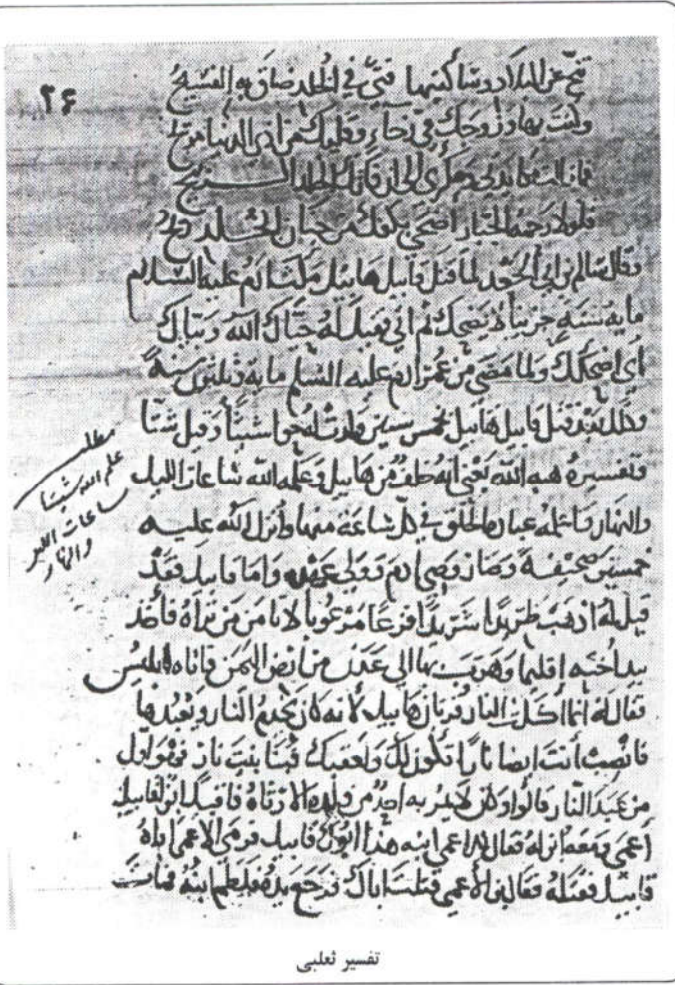 تنح عن البلاد وساكنيها فبي في الخلد ضاق به الفسيح
وكنت بها وزوجك في رخاء وقلبك من اذي الدنيا مريح
فما زالت مكايدتي ومكري الي ان فاتك الخلد الـــربيح
فلولا رحمة الجبار اضحي بكفك من جنان الخــلد ريح
وقال سالم بن ابي الجعد لما قتل قابيل هابيل مكث ادم عليه السلام
مايه سنة حزينا لا يضحك ثم اتي فقيل له حياك الله وبياك
اي اضحكك ولما مضي من عمر ادم عليه السلم مايه وثلثين سنة
وذلك بعد قتل قابيل هابيل بخمس سنين ولدت له حوا شيثا وقيل شتا
وتفسيره هبه الله يعني انه خلف من هابيل وعلمه الله ساعات الليل
والنهار واعلمه عبادة الخلق في كل ساعة منها وانزل الله عليه
خمسين صحيفة وصار وصي ادم وولي عهده واما قابيل فقد
قيل له اذهب طريدا شريدا فزعا مرعوبا لا تامن من تراه فاخذ
بيد اخته اقليما وهرب بها الي عدن من ارض اليمن فاتاه ابليس
فقال له انما اكلت النار قربان هابيل لانه كان يخدم النار ويعبدها
فانصب انت ايضا نارا تكون لك ولعقبك فبنا بيت نار فهو اول
من عبد النار قالوا وكان لا يمر به احد من ولده الا رماه فاقبل ابن لقابيل
اعمي ومعه ابن له فقال للاعمي ابنه هذا ابوك قابيل فرمي الاعمي اباه
قابيل فقتله فقال ابن الاعمي قتلت اباك فرفع يده فلطم ابنه فمات
۳۶
مطلب
علم الله شيثا
ساعات الليل
والنهار
تفسیر ثعلبی